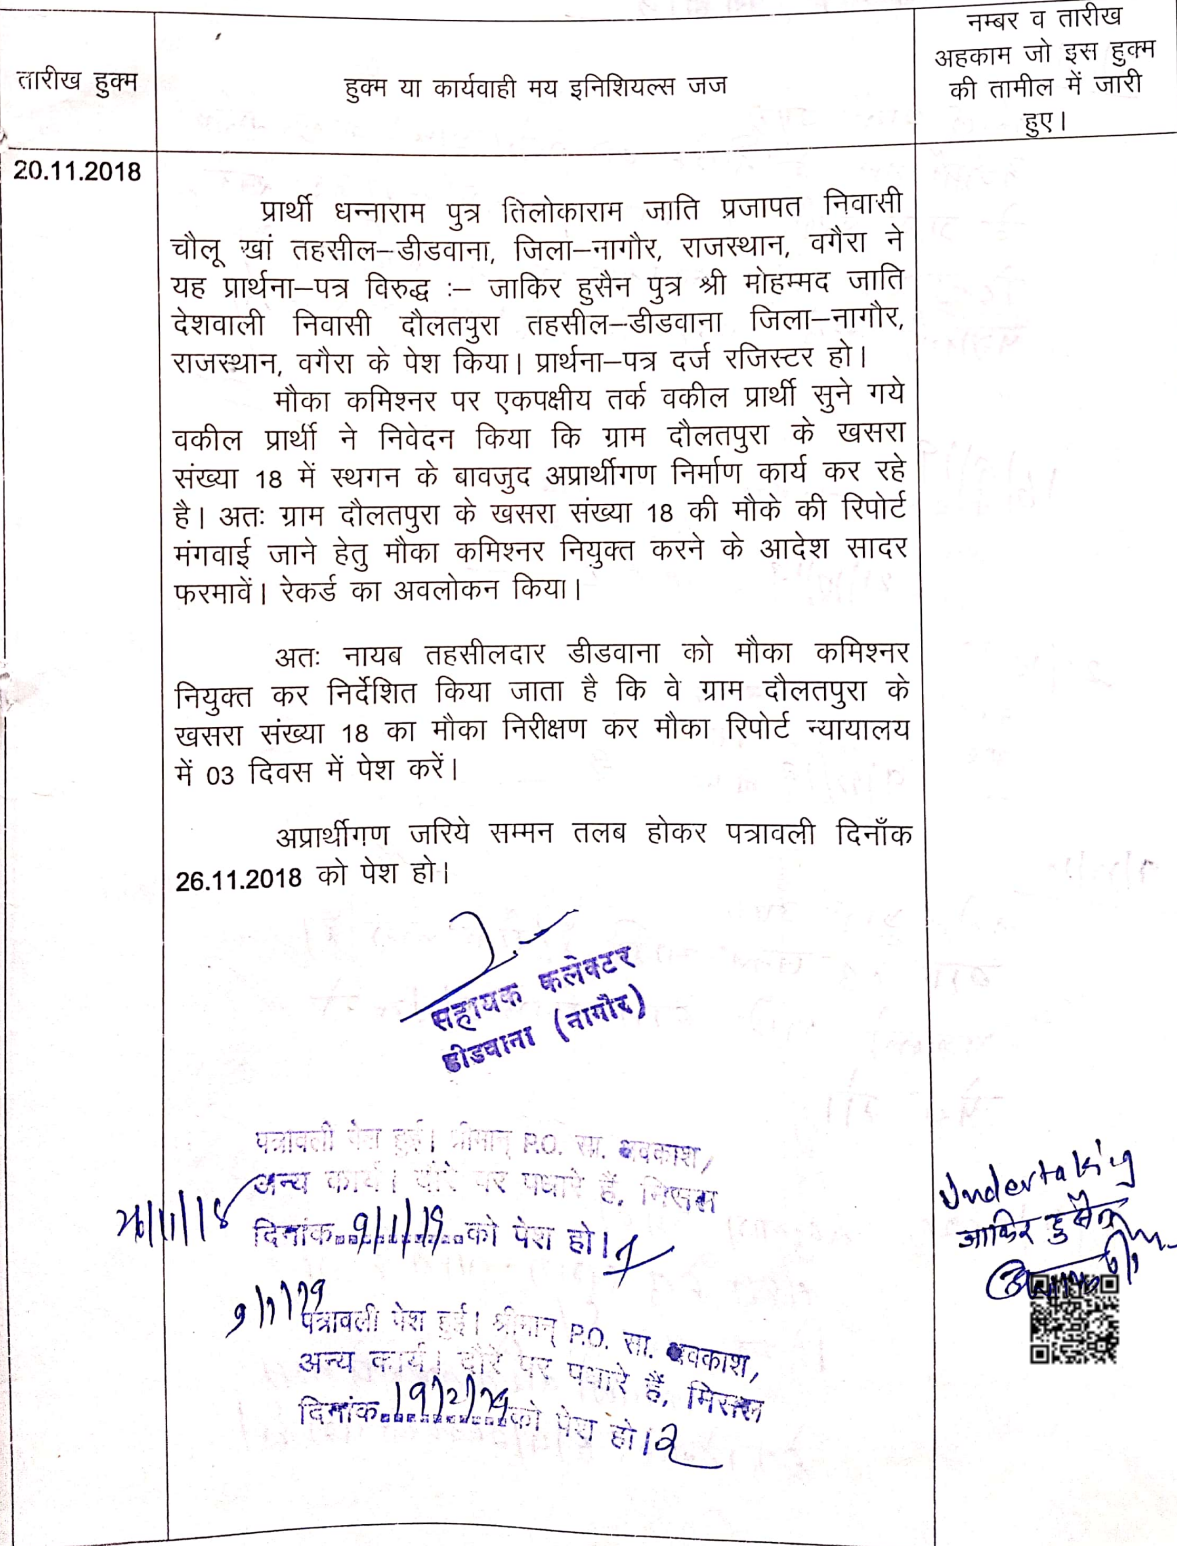 तारीख हुक्म
हुक्म या कार्यवाही मय इनिशियल्स जज
नम्बर व तारीख
अहकाम जो इस हुक्म
की तामील में जारी
हुए।
20.11.2018
प्रार्थी धन्नाराम पुत्र तिलोकाराम जाति प्रजापत निवासी
चौलू खां तहसील–डीडवाना, जिला–नागौर, राजस्थान, वगैरा ने
यह प्रार्थना–पत्र विरुद्ध :– जाकिर हुसैन पुत्र श्री मोहम्मद जाति
देशवाली निवासी दौलतपुरा तहसील–डीडवाना जिला–नागौर,
राजस्थान, वगैरा के पेश किया। प्रार्थना–पत्र दर्ज रजिस्टर हो।
मौका कमिश्नर पर एकपक्षीय तर्क वकील प्रार्थी सुने गये
वकील प्रार्थी ने निवेदन किया कि ग्राम दौलतपुरा के खसरा
संख्या 18 में स्थगन के बावजुद अप्रार्थीगण निर्माण कार्य कर रहे
है। अतः ग्राम दौलतपुरा के खसरा संख्या 18 की मौके की रिपोर्ट
मंगवाई जाने हेतु मौका कमिश्नर नियुक्त करने के आदेश सादर
फरमावें। रेकर्ड का अवलोकन किया।
अतः नायब तहसीलदार डीडवाना को मौका कमिश्नर
नियुक्त कर निर्देशित किया जाता है कि वे ग्राम दौलतपुरा के
खसरा संख्या 18 का मौका निरीक्षण कर मौका रिपोर्ट न्यायालय
में 03 दिवस में पेश करें।
अप्रार्थीगण जरिये सम्मन तलब होकर पत्रावली दिनाँक
26.11.2018 को पेश हो।
सहायक कलेक्टर
डीडवाना (नागौर)
पत्रावली पेश हुई। श्रीमान् P.O. सा. अवकाश,
अन्य कार्य। दौरे पर पधारे हैं, मिसल
26/11/18
दिनांक 9/1/19 को पेश हो।
Undertaking
जाकिर हुसैन
9/1/19
पत्रावली पेश हुई। श्रीमान् P.O. सा. अवकाश,
अन्य कार्य। दौरे पर पधारे हैं, मिसल
दिनांक 19/2/19 को पेश हो।